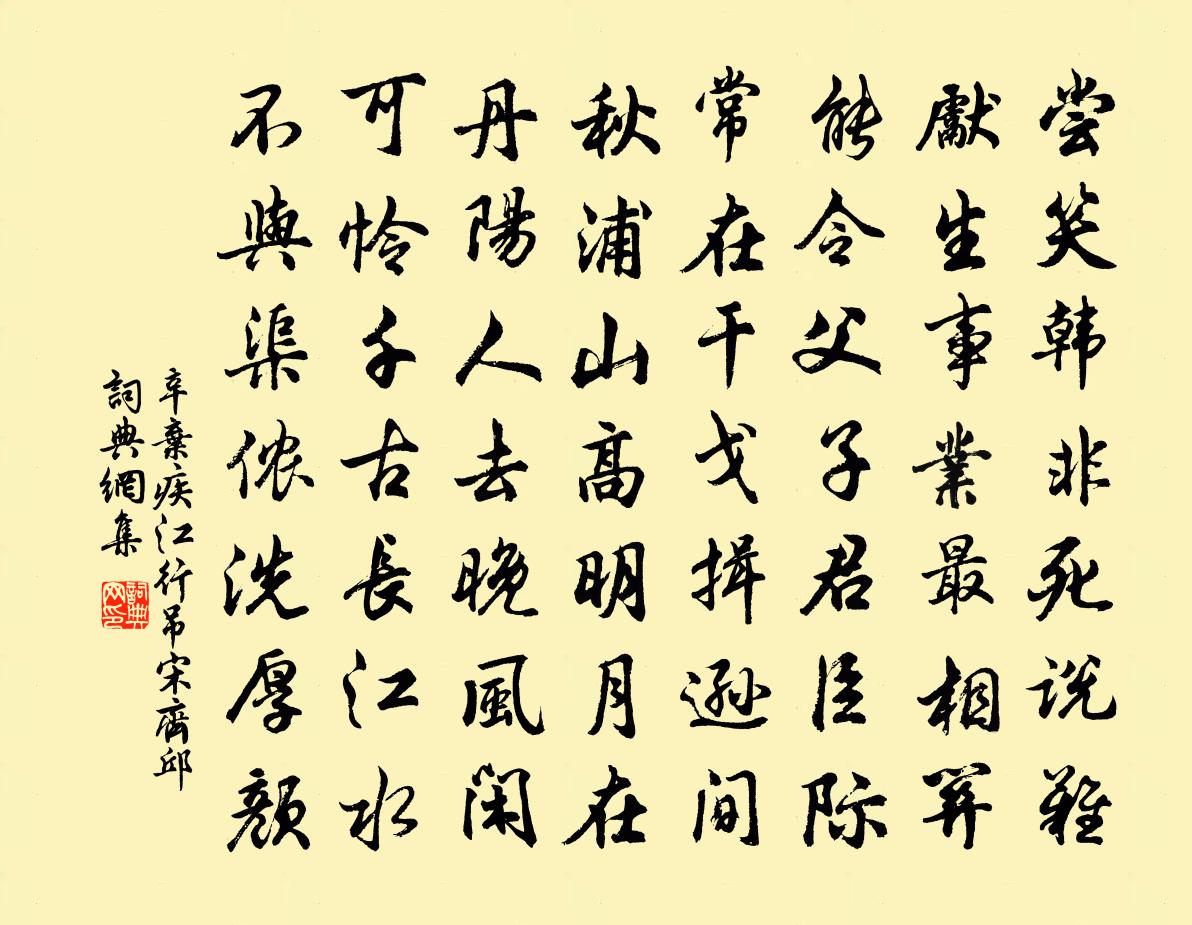 尝笑韩非死说難
獻生事業最相關
能令父子君臣际
常在干戈揖遜间
秋浦山高明月在
丹陽人去晚風闲
可怜千古長江水
不與渠侬洗厚颜
辛棄疾江行吊宋齊邱
詞典網集
詞典网印